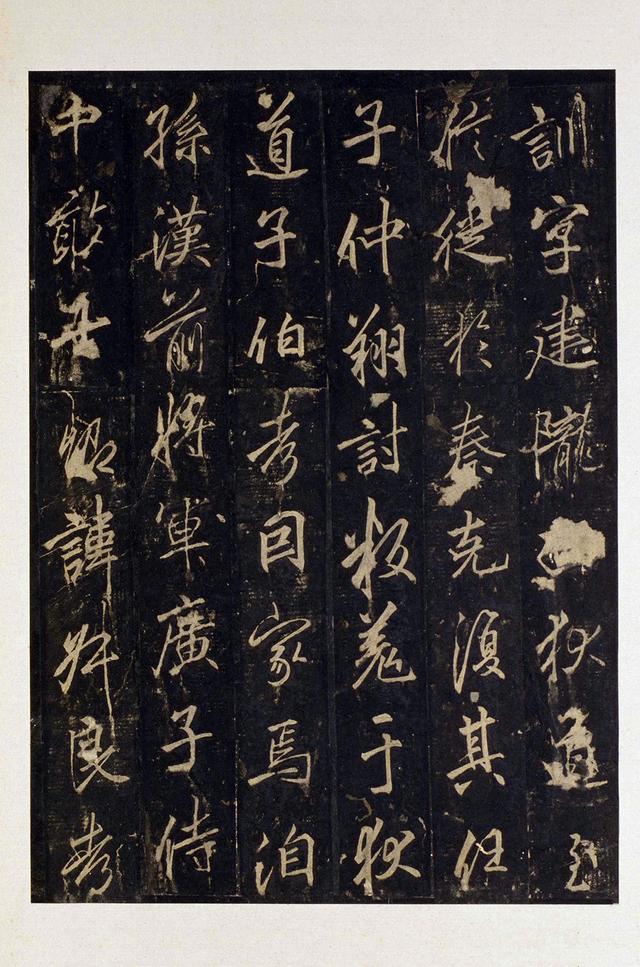 訓字建隴狄道至
於徙於秦克復其任
子仲翔討叛羌于狄
道子伯考因家焉洎
孫漢前將軍廣子侍
中敢諱良考